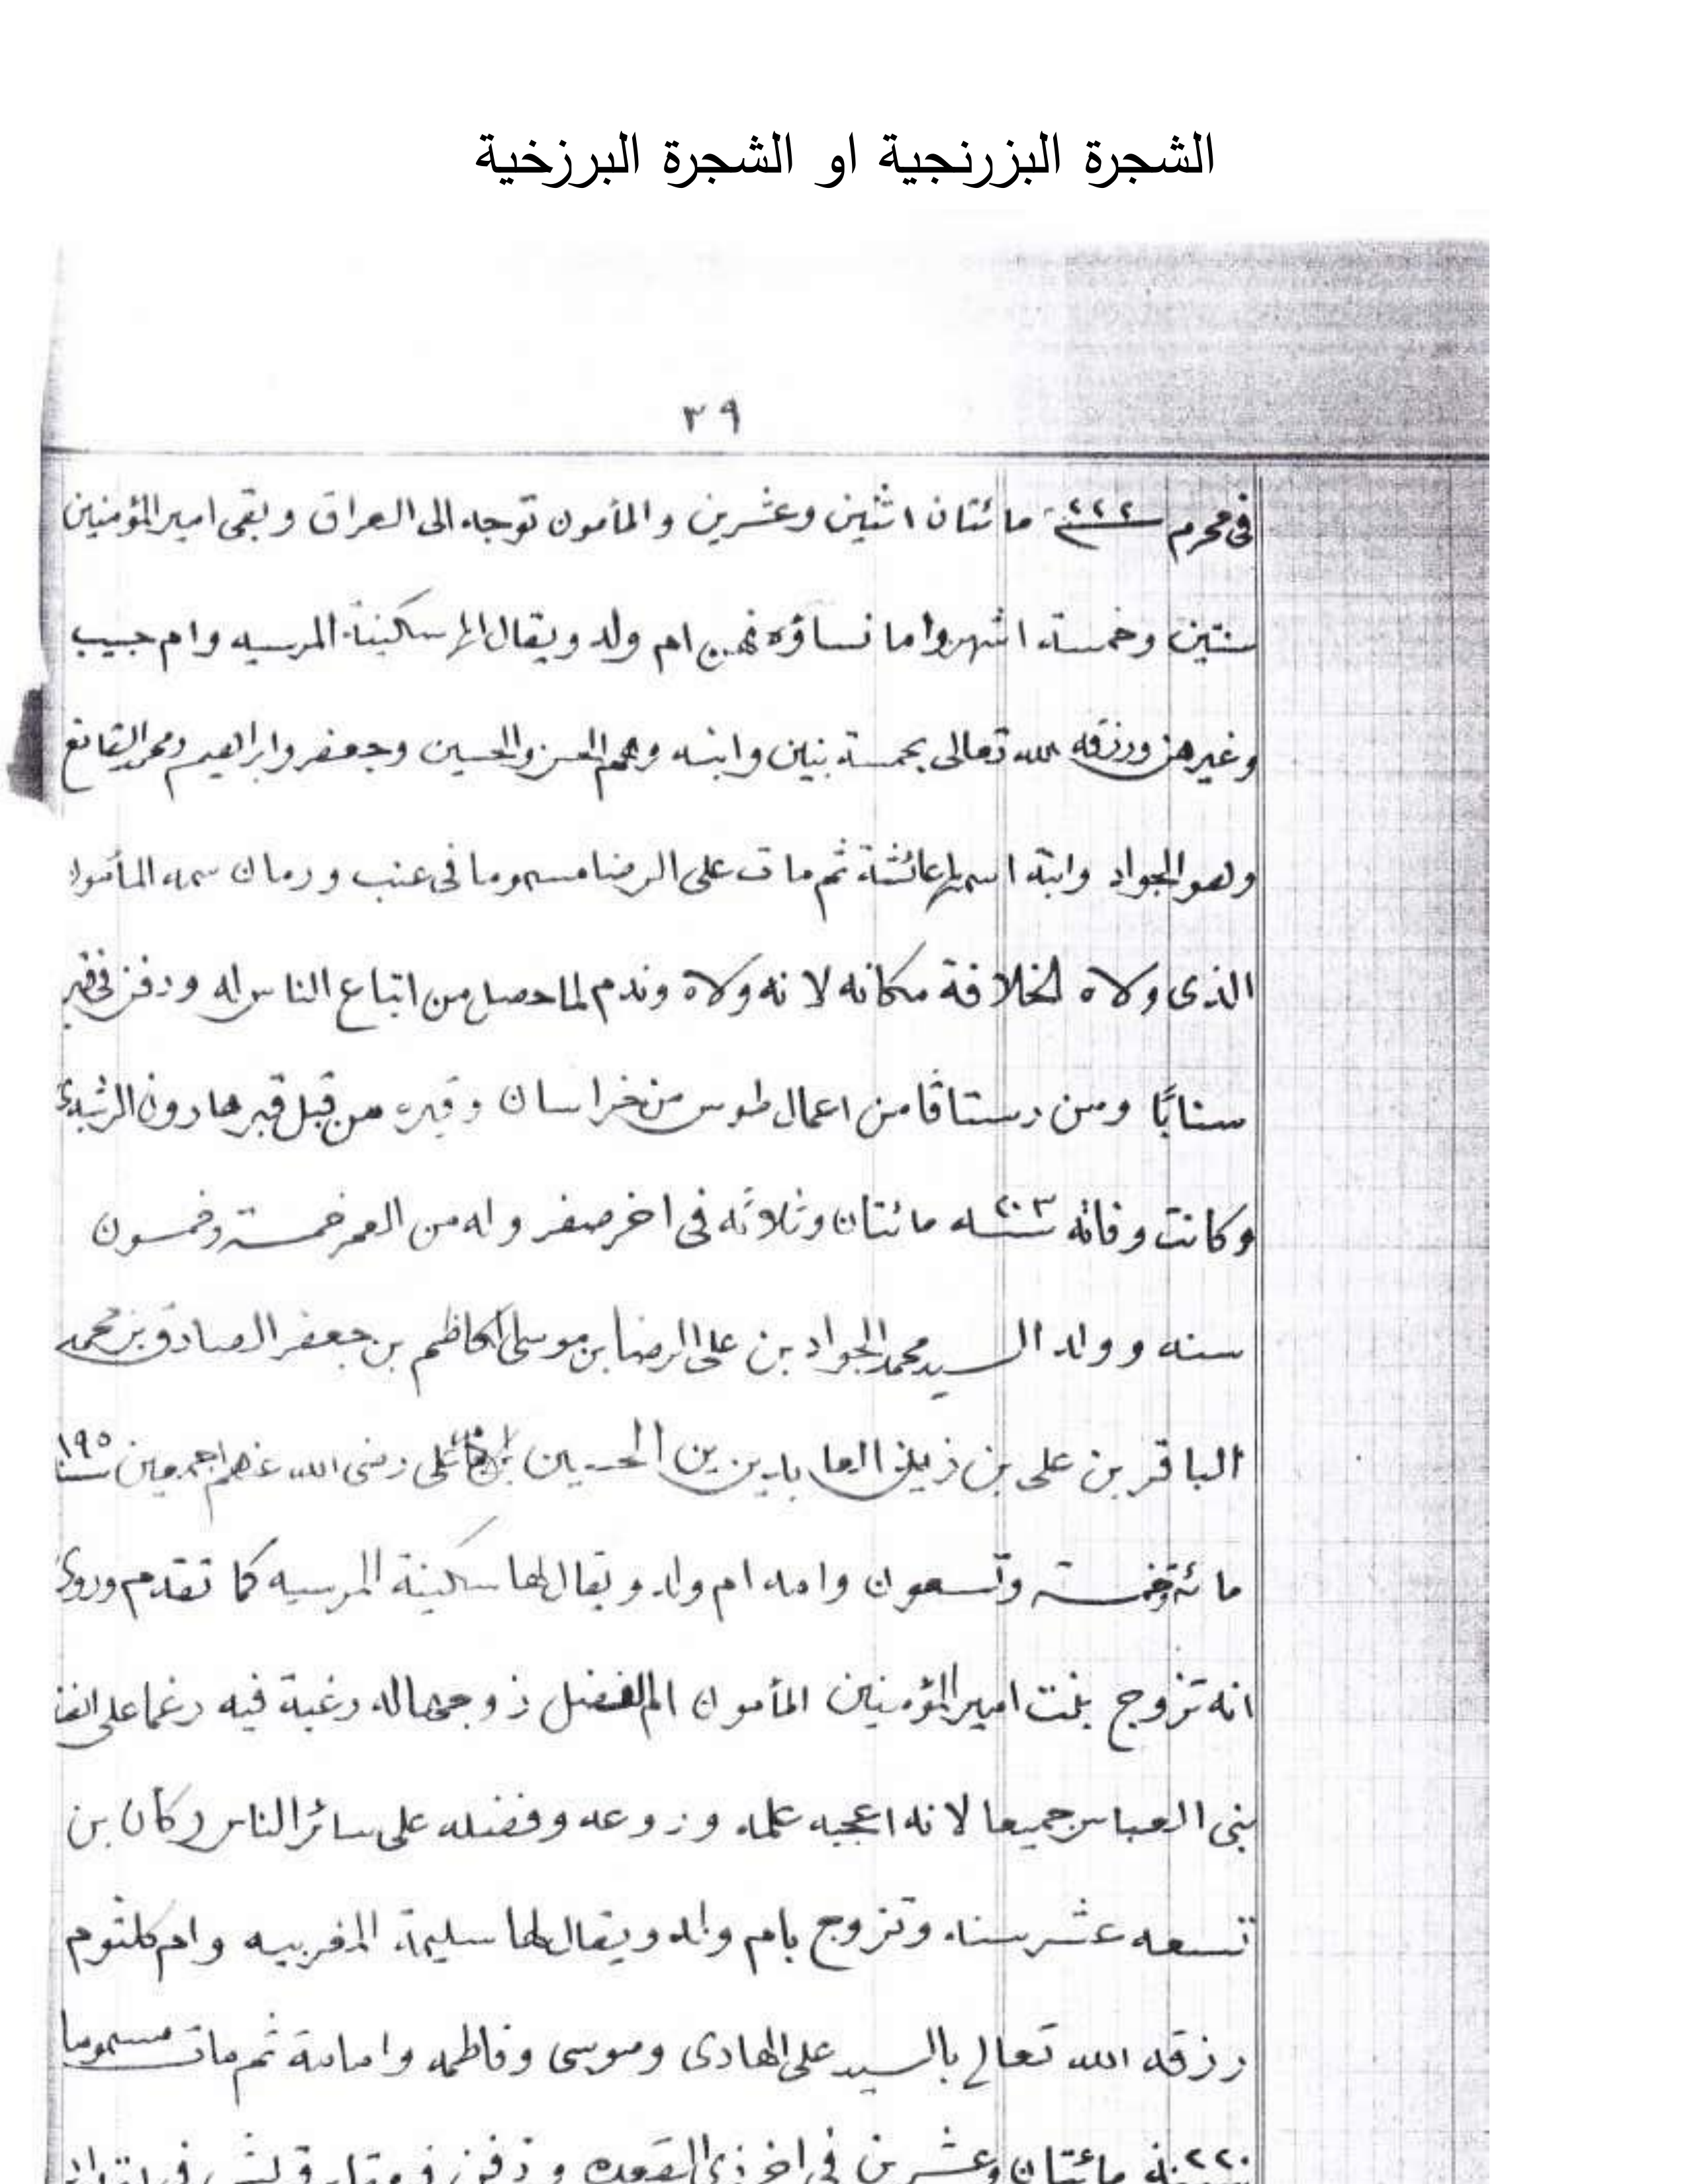 الشجرة البزرنجية او الشجرة البرزخية
٣٩
فى محرم ٢٢٢ مائتان اثنين وعشرين والمأمون توجه الى العراق وبقى امير المؤمنين
سنتين وخمسة اشهر واما نساؤه فهن ام ولد ويقال لها سكينة المرسيه وام حبيب
وغيرهن ورزقه الله تعالى بخمسة بنين وابنه وهم الحسن والحسين وجعفر وابراهيم ومحمد القانع
وهو الجواد وابنة اسمها عائشة ثم مات على الرضا مسموما فى عنب ورمان سمه المأمون
الذى ولاه الخلافة مكانه لانه ولاه وندم لما حصل من اتباع الناس له ودفن فى قبر
سنابًا ومن رستاقا من اعمال طوس من خراسان وقبره من قبل قبر هارون الرشيد
وكانت وفاته سنه ٢٠٣ مائتان وثلاثه فى اخر صفر وله من العمر خمسة وخمسون
سنه وولد السيد محمد الجواد بن على الرضا بن موسى الكاظم بن جعفر الصادق بن محمد
الباقر بن على بن زين العابدين بن الحسين على رضى الله عنهم اجمعين سنة ١٩٥
مائة وخمسة وتسعون وامه ام ولد ويقال لها سكينة المرسيه كما تقدم وروى
انه تزوج بنت امير المؤمنين المأمون ام الفضل زوجها له رغبة فيه رغما على انف
بنى العباس جميعا لانه اعجبه علمه وزوعه وفضله على سائر الناس وكان بن
تسعه عشر سنه وتزوج بام ولد ويقال لها سليمة المغربيه وام كلثوم
رزقه الله تعالى بالسيد على الهادى وموسى وفاطمه وامامة ثم مات مسموما
سنه ٢٢٠ مائتان وعشرين فى اخر ذى القعده ودفن فى مقابر قريش فى